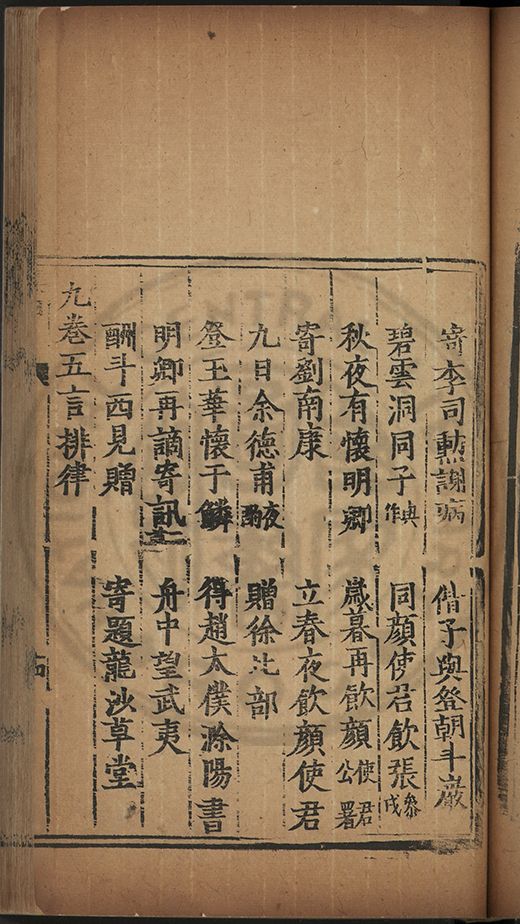 寄李司勲謝病　偕子與登朝斗巖
碧雲洞同子與作　同顔使君飲張參戎
秋夜有懷明卿　歲暮再飲顔使君公署
寄劉南康　立春夜飲顔使君
九日余德甫夜酌　贈徐比部
登玉華懷于鱗　得趙太僕滁陽書
明卿再謫寄訊二　舟中望武夷
酬斗西見贈　寄題龍沙草堂
九卷五言排律